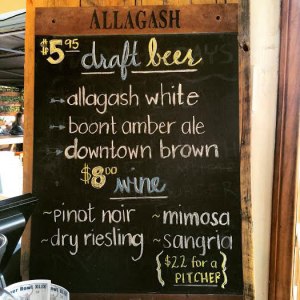 ALLAGASH
$5.95 draft beer
→ allagash white
→ boont amber ale
→ downtown brown
$8.00 wine
~pinot noir ~mimosa
~dry riesling ~sangria
{$22 for a
PITCHER}